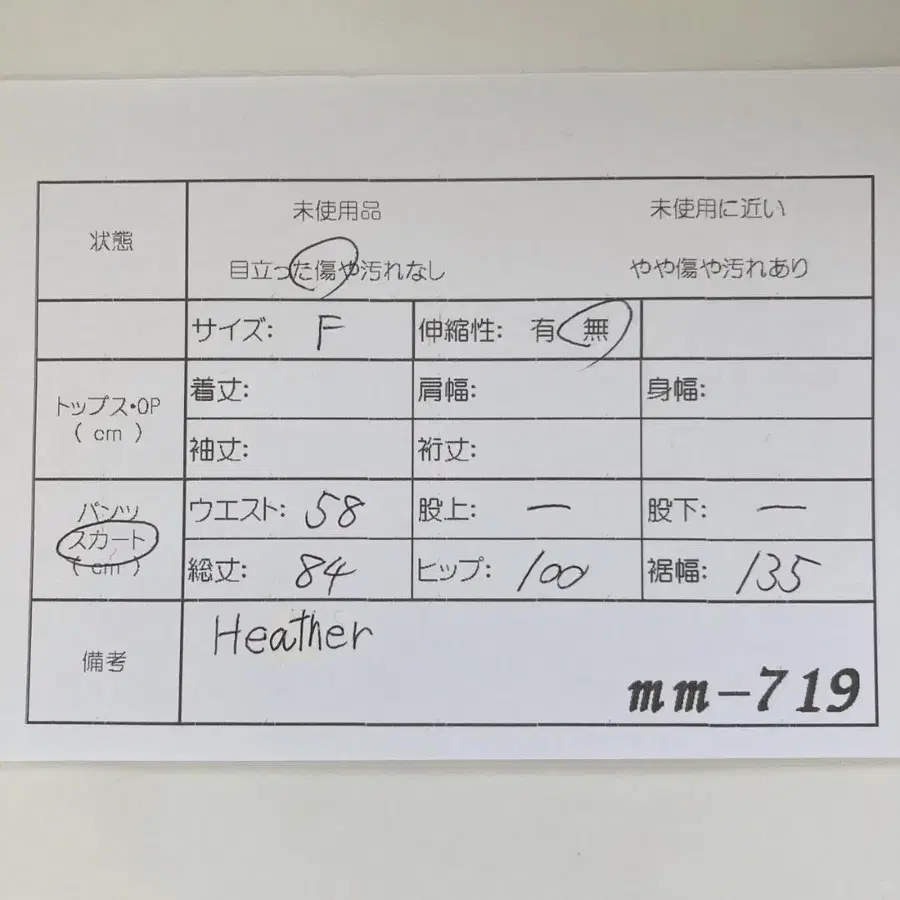 状態
未使用品 未使用に近い
目立った傷や汚れなし やや傷や汚れあり
サイズ: F 伸縮性: 有 無
トップス・OP
( cm )
着丈: 肩幅: 身幅:
袖丈: 裄丈:
パンツ
スカート
( cm )
ウエスト: 58 股上: ー 股下: ー
総丈: 84 ヒップ: 100 裾幅: 135
備考
Heather
mm-719